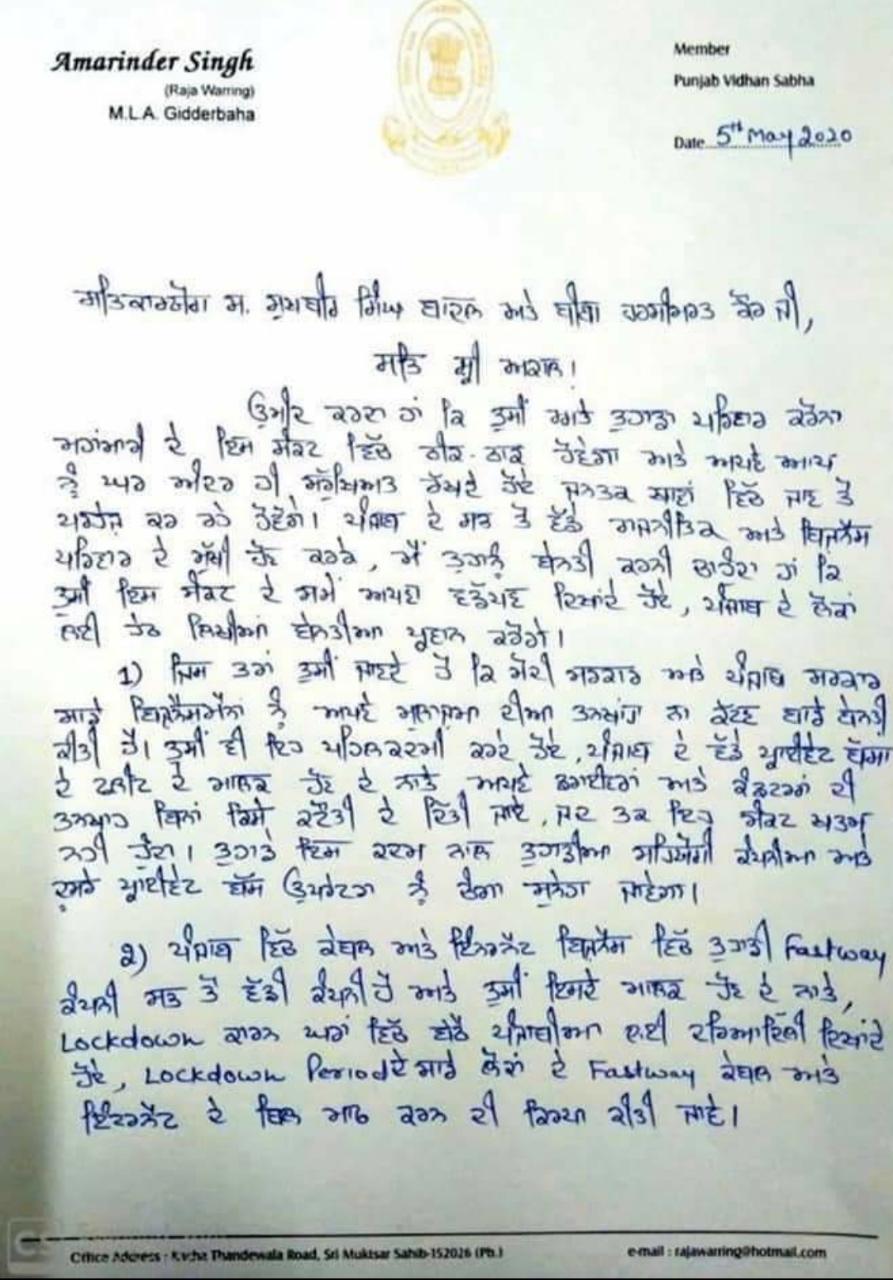 Amarinder Singh
(Raja Warring)
M.L.A. Gidderbaha
Member
Punjab Vidhan Sabha
Date 5th May 2020
ਸਤਿਕਾਰਯੋਗ ਸ. ਸੁਖਬੀਰ ਸਿੰਘ ਬਾਦਲ ਅਤੇ ਬੀਬਾ ਹਰਸਿਮਰਤ ਕੌਰ ਜੀ,
ਸਤਿ ਸ੍ਰੀ ਅਕਾਲ।
ਉਮੀਦ ਕਰਦਾ ਹਾਂ ਕਿ ਤੁਸੀਂ ਅਤੇ ਤੁਹਾਡਾ ਪਰਿਵਾਰ ਕਰੋਨਾ
ਮਹਾਂਮਾਰੀ ਦੇ ਇਸ ਸੰਕਟ ਵਿੱਚ ਠੀਕ-ਠਾਕ ਹੋਵੇਗਾ ਅਤੇ ਅਪਣੇ ਆਪ
ਨੂੰ ਘਰ ਅੰਦਰ ਹੀ ਸੁਰੱਖਿਅਤ ਰੱਖਦੇ ਹੋਏ ਜਨਤਕ ਥਾਵਾਂ ਵਿੱਚ ਜਾਣ ਤੋਂ
ਪਰਹੇਜ਼ ਕਰ ਰਹੇ ਹੋਵੋਗੇ। ਪੰਜਾਬ ਦੇ ਸਭ ਤੋਂ ਵੱਡੇ ਰਾਜਨੀਤਿਕ ਅਤੇ ਬਿਜਨੈਸ
ਪਰਿਵਾਰ ਦੇ ਮੁੱਖੀ ਹੋਣ ਕਰਕੇ, ਮੈਂ ਤੁਹਾਨੂੰ ਬੇਨਤੀ ਕਰਨੀ ਚਾਹੁੰਦਾ ਹਾਂ ਕਿ
ਤੁਸੀਂ ਇਸ ਸੰਕਟ ਦੇ ਸਮੇਂ ਅਪਣਾ ਵਡੱਪਣ ਦਿਖਾਂਦੇ ਹੋਏ, ਪੰਜਾਬ ਦੇ ਲੋਕਾਂ
ਲਈ ਹੇਠ ਲਿਖੀਆਂ ਬੇਨਤੀਆ ਪ੍ਰਵਾਨ ਕਰੋਗੇ।
1) ਜਿਸ ਤਰਾਂ ਤੁਸੀਂ ਜਾਣਦੇ ਹੋ ਕਿ ਮੋਦੀ ਸਰਕਾਰ ਅਤੇ ਪੰਜਾਬ ਸਰਕਾਰ
ਸਾਰੇ ਬਿਜਨੈਸਮੈਨਾਂ ਨੂੰ ਅਪਣੇ ਮੁਲਾਜਮਾ ਦੀਆ ਤਨਖਾਂਹਾ ਨਾ ਕੱਟਣ ਬਾਰੇ ਬੇਨਤੀ
ਕੀਤੀ ਹੈ। ਤੁਸੀਂ ਵੀ ਇਹ ਪਹਿਲਕਦਮੀ ਕਰਦੇ ਹੋਏ, ਪੰਜਾਬ ਦੇ ਵੱਡੇ ਪ੍ਰਾਈਵੇਟ ਬੱਸਾ
ਦੇ ਫਲੀਟ ਦੇ ਮਾਲਕ ਹੋਣ ਦੇ ਨਾਤੇ, ਅਪਣੇ ਡਰਾਈਵਰਾਂ ਅਤੇ ਕੰਡਕਟਰਾਂ ਦੀ
ਤਨਖਾਹ ਬਿਨਾਂ ਕਿਸੇ ਕਟੌਤੀ ਦੇ ਦਿੱਤੀ ਜਾਵੇ, ਜਦ ਤਕ ਇਹ ਸੰਕਟ ਖਤਮ
ਨਹੀ ਹੁੰਦਾ। ਤੁਹਾਡੇ ਇਸ ਕਦਮ ਨਾਲ ਤੁਹਾਡੀਆ ਸਹਿਯੋਗੀ ਕੰਪਨੀਆ ਅਤੇ
ਦੂਸਰੇ ਪ੍ਰਾਈਵੇਟ ਬੱਸ ਉਪਰੇਟਰਾ ਨੂੰ ਚੰਗਾ ਸੁਨੇਹਾ ਜਾਵੇਗਾ।
2) ਪੰਜਾਬ ਵਿੱਚ ਕੇਬਲ ਅਤੇ ਇੰਟਰਨੈਟ ਬਿਜਨੈਸ ਵਿੱਚ ਤੁਹਾਡੀ Fastway
ਕੰਪਨੀ ਸਭ ਤੋਂ ਵੱਡੀ ਕੰਪਨੀ ਹੈ ਅਤੇ ਤੁਸੀਂ ਇਸਦੇ ਮਾਲਕ ਹੋਣ ਦੇ ਨਾਤੇ,
Lockdown ਕਾਰਨ ਘਰਾਂ ਵਿੱਚ ਬੈਠੇ ਪੰਜਾਬੀਆ ਲਈ ਦਰਿਆਦਿਲੀ ਦਿਖਾਂਦੇ
ਹੋਏ, Lockdown Period ਦੇ ਸਾਰੇ ਲੋਕਾਂ ਦੇ Fastway ਕੇਬਲ ਅਤੇ
ਇੰਟਰਨੈਟ ਦੇ ਬਿਲ ਮਾਫ ਕਰਨ ਦੀ ਕਿਰਪਾ ਕੀਤੀ ਜਾਵੇ।
CS
Office Address : Kacha Thandewala Road, Sri Muktsar Sahib-152026 (Pb.)
e-mail : rajawarring@hotmail.com